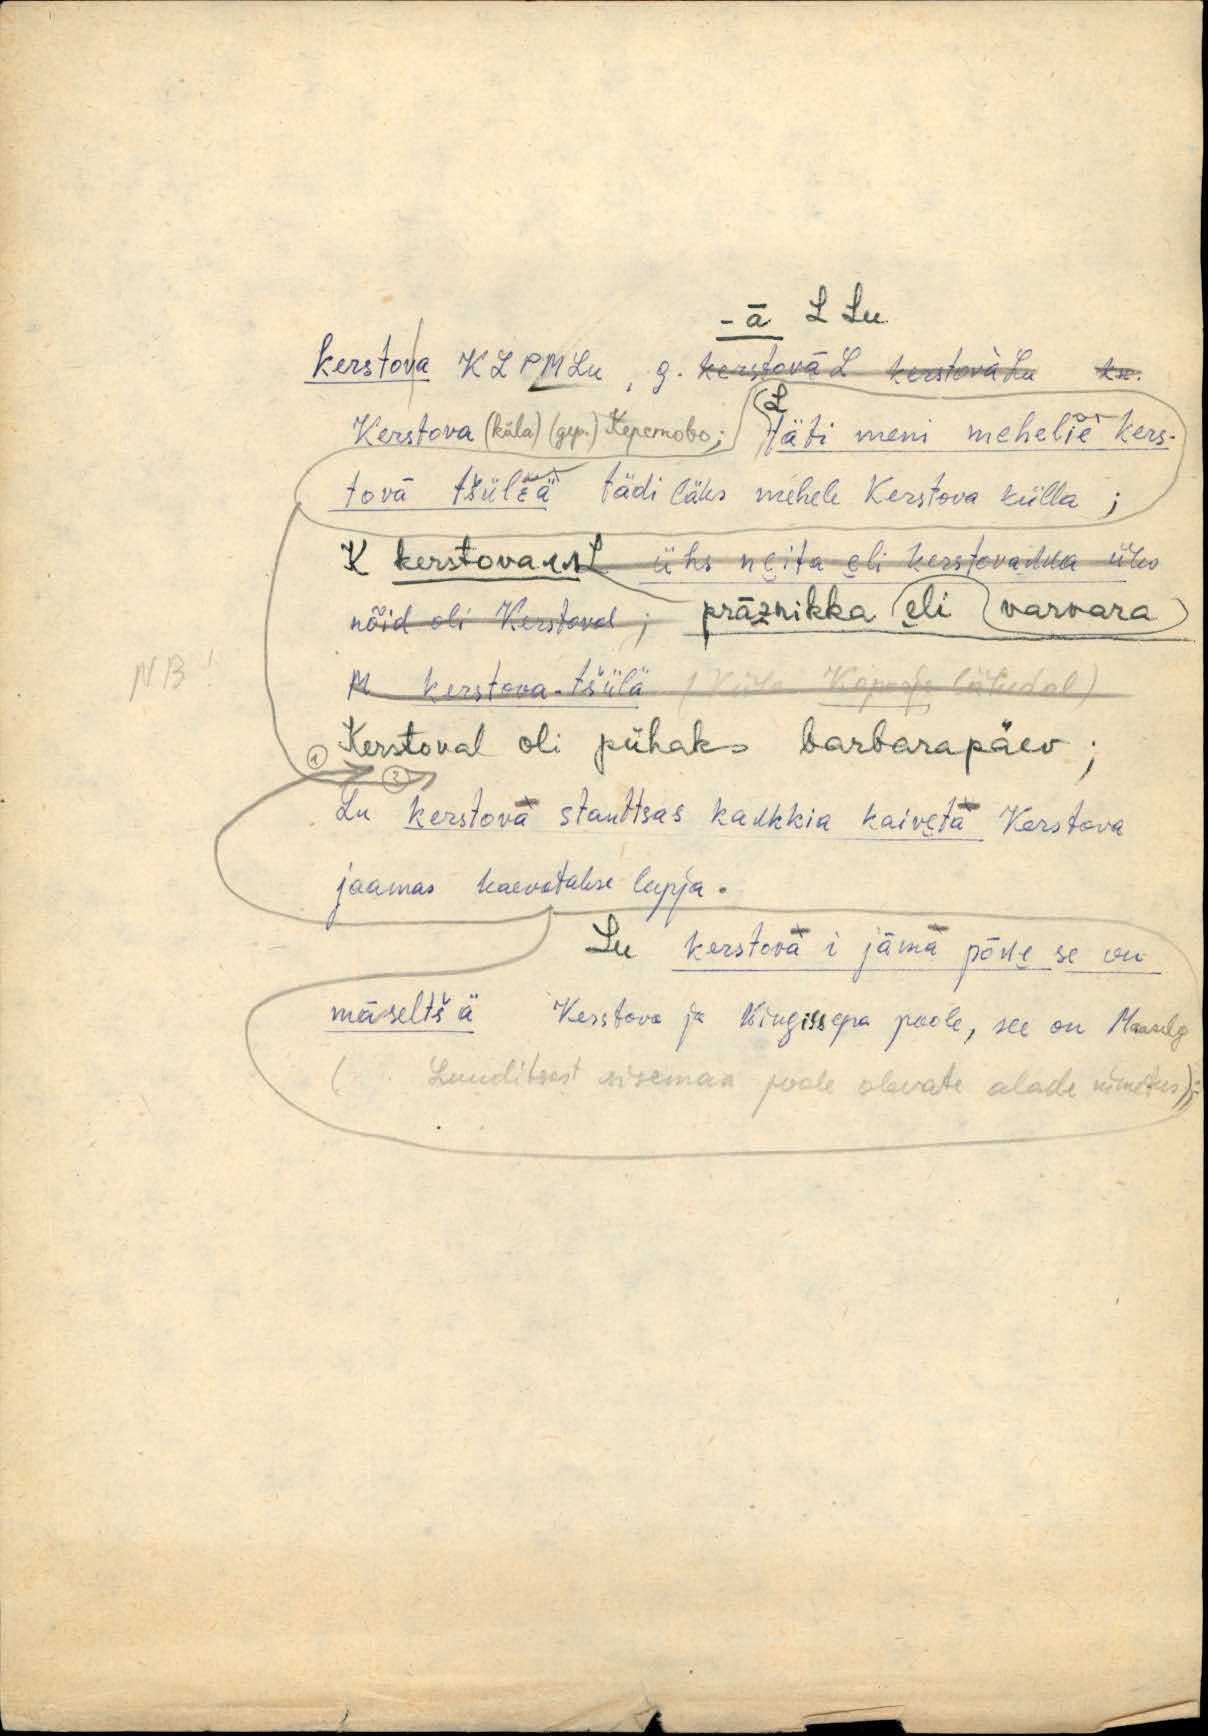 -ā L Lu
kerstov|a K L P M Lu, g. kerstovā L kerstovà Lu kn.
Kerstova (küla) (дер.) Керстово; L täti meni meheliē kers-
tovā tšüľǟ tädi läks mehele Kerstova külla;
K kerstovaᴢᴢᴀ L ühs nɛita ɛli kerstovaᴢᴢa üks
nõid oli Kerstoval; prāznikka ɛli varvara
M kerstova-tšülä (Küla Koporje lähedal)
NB!
Kerstoval oli pühaks barbarapäev;
① ②
Lu kerstovā stanttsas kaukkia kaivɛtā Kerstova
jaamas kaevatakse lupja.
Lu kerstovā i jāmā pōlɛ se on
māseltšä Kerstova ja Kingissepa poole, see on Maaselg
( Luuditsast sisemaa poole olevate alade nimetus);